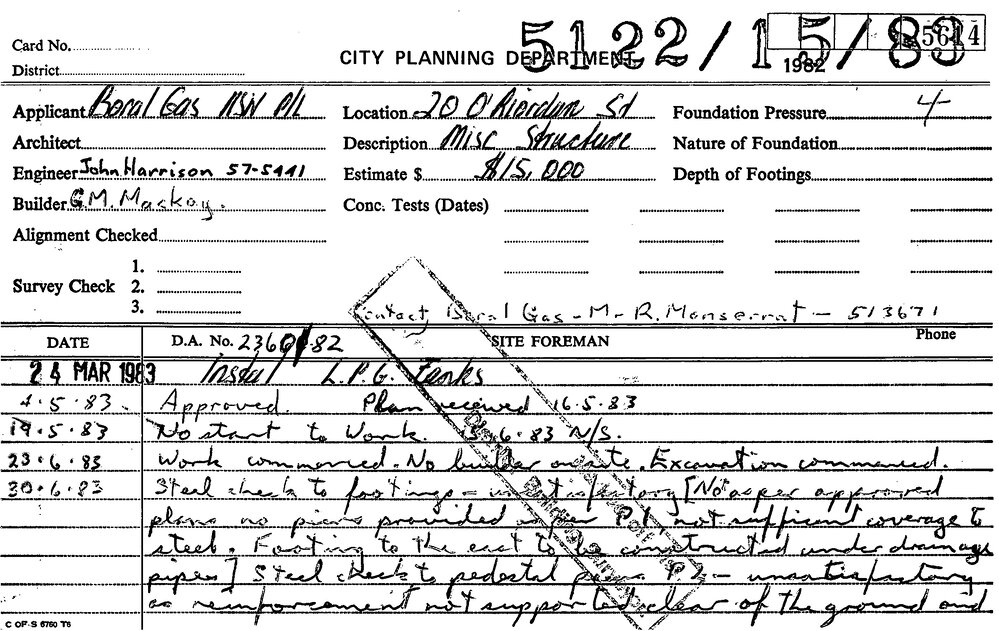 5122/15/83
5614
Card No.
CITY PLANNING DEPARTMENT
1982
District
Applicant Boral Gas NSW P/L Location 20 O'Riordan St Foundation Pressure 4
Architect Description Misc Structure Nature of Foundation
Engineer John Harrison 57-5441 Estimate $ $15,000 Depth of Footings
Builder G.M. Mackay. Conc. Tests (Dates)
Alignment Checked
1.
Survey Check 2.
3.
Contact Boral Gas - Mr R. Monserrat - 513671
DATE D.A. No. 82 SITE FOREMAN Phone
24 MAR 1983 Instal L.P.G. Tanks
4.5.83. Approved. Plan received 16.5.83
19.5.83 No start to Work. 15.6.83 N/S.
23.6.83 Work commenced. No builder onsite. Excavation commenced.
30.6.83 Steel check to footings = unsatisfactory [Not as per approved
plans no piers provided as per P1 not sufficient coverage to
steel. Footing to the east to be constructed under drainage
pipes] Steel check to pedestal piers P2 - unsatisfactory
as reinforcement not supported clear of the ground and
C OF S 6760 T6